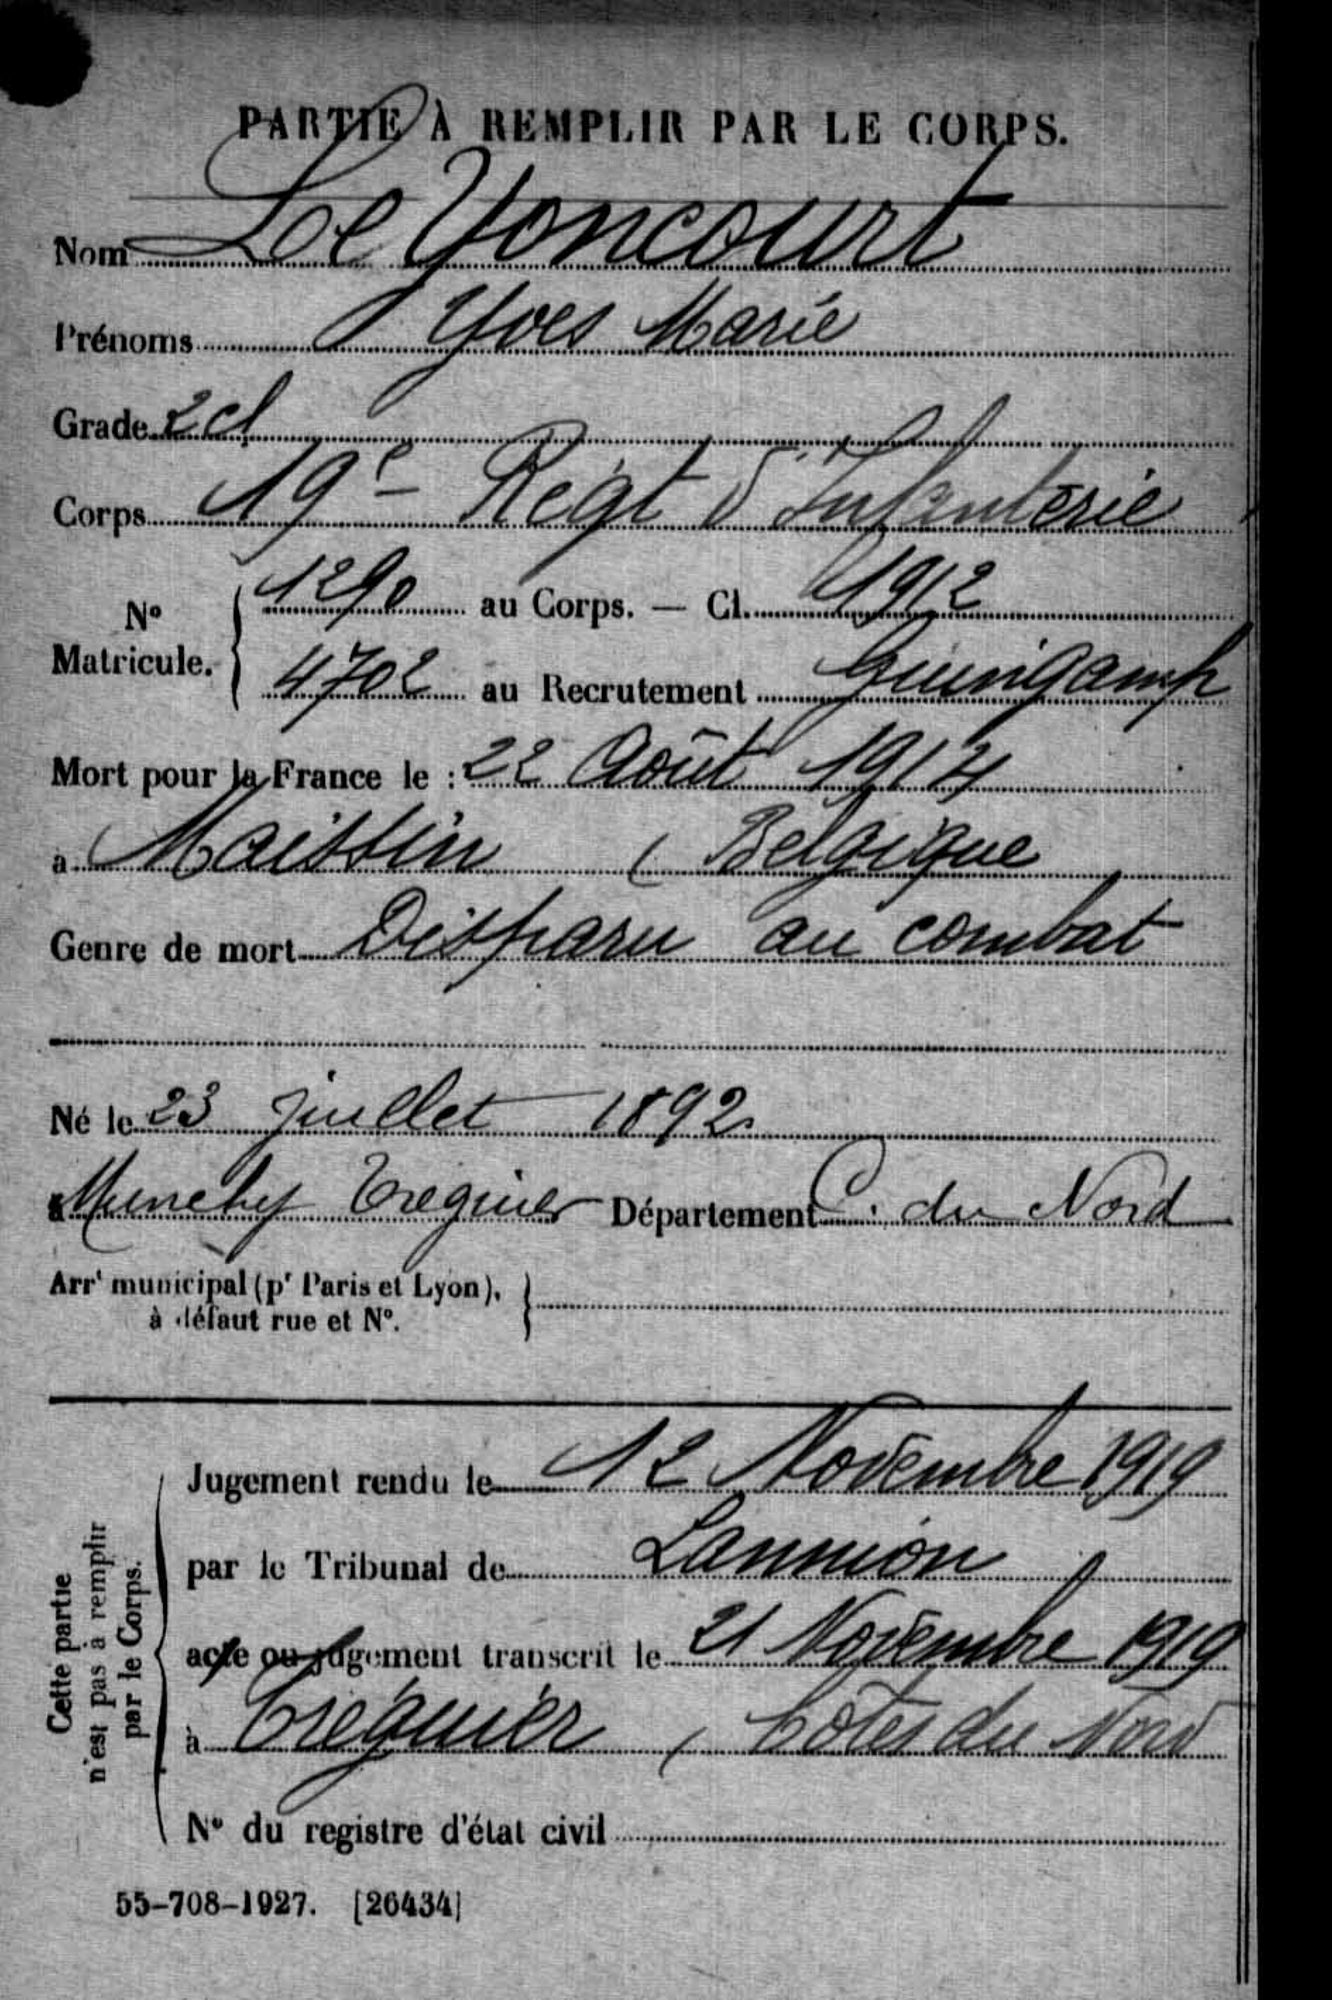 PARTIE À REMPLIR PAR LE CORPS.
Nom Le Yoncourt
Prénoms Yves Marie
Grade 2 cl
Corps 19e Régt d'Infanterie
No Matricule. { 1290 au Corps. — Cl. 1912
4702 au Recrutement Guingamp
Mort pour la France le : 22 Août 1914
à Maissin (Belgique
Genre de mort Disparu au combat
Né le 23 juillet 1892
à Minehy Treguier Département C. du Nord
Arrt municipal (pr Paris et Lyon), à défaut rue et No. }
Cette partie n'est pas à remplir par le Corps.
Jugement rendu le 12 Novembre 1919
par le Tribunal de Lannion
acte ou jugement transcrit le 21 Novembre 1919
à Tréguier, Côtes du Nord
No du registre d'état civil
55-708-1927. [26434]